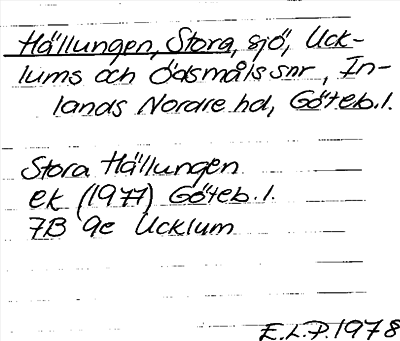 Hällungen, Stora, sjö, Uck-
lums och Ödsmåls snr, In-
lands Nordre hd, Göteb. l.
Stora Hällungen
ek (1977) Göteb. l.
7B 9e Ucklum
E.L.P. 1978